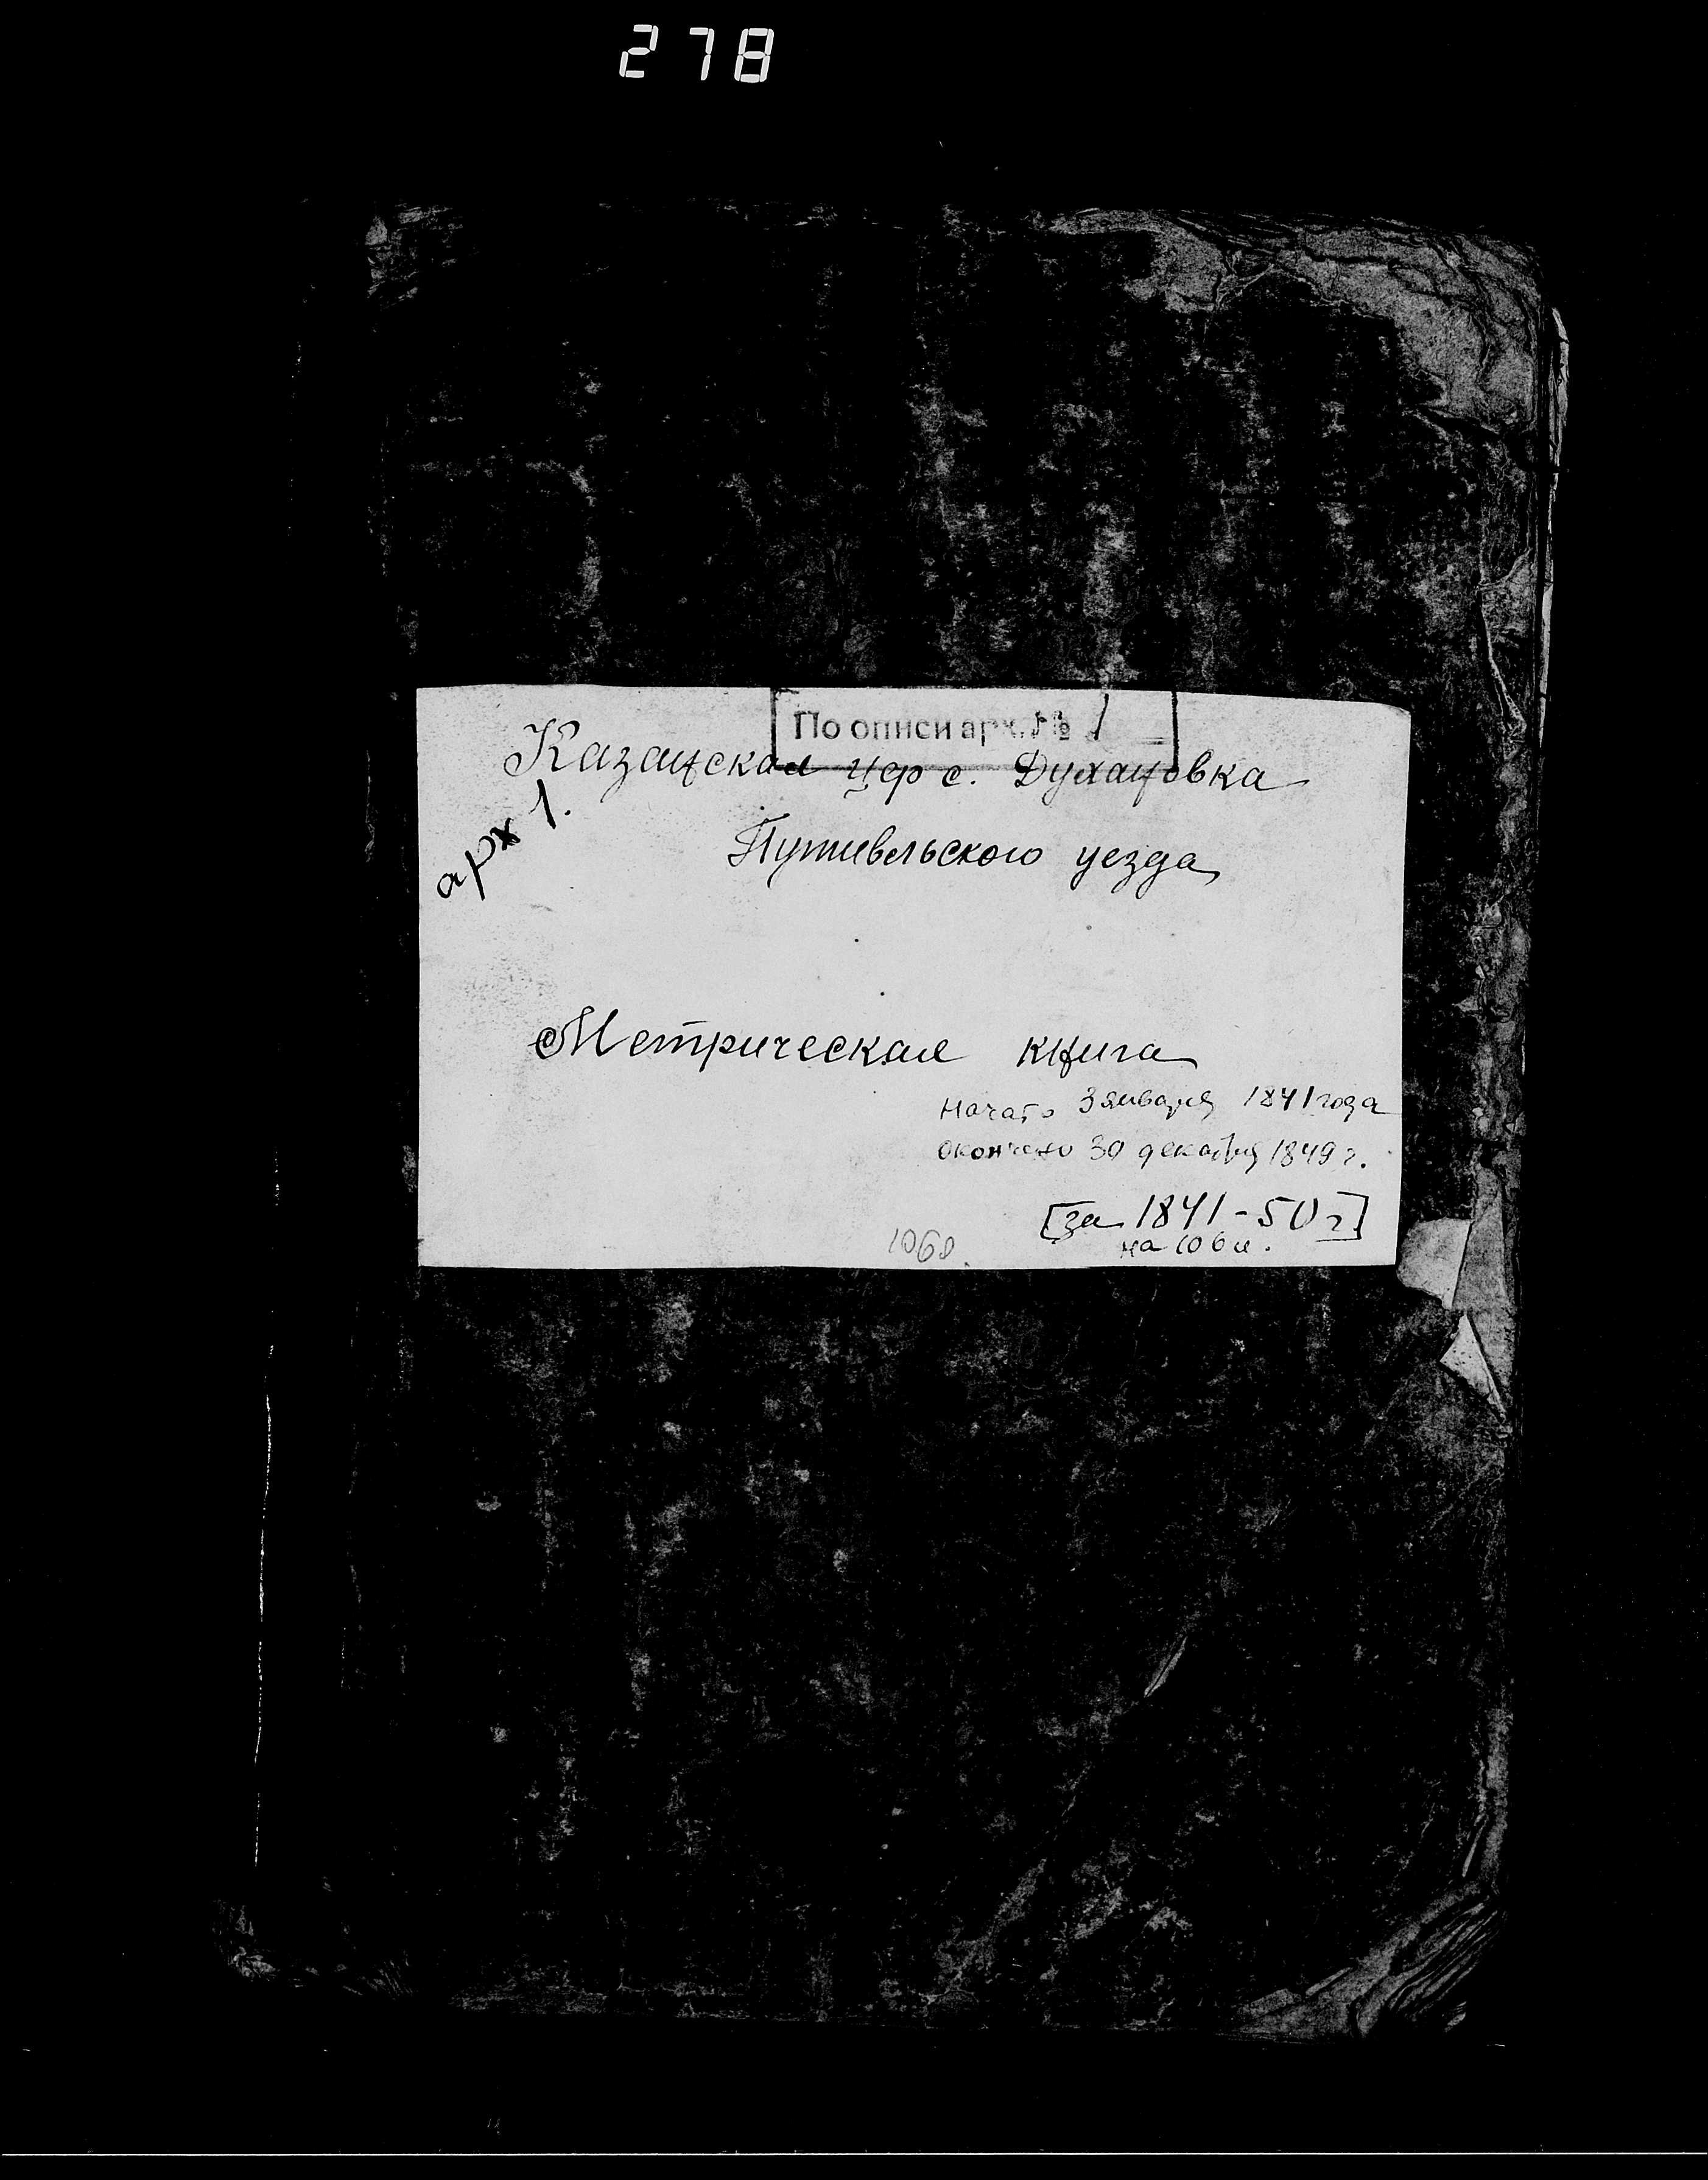 278
По описи арх. № 1
Казанская цер с. Духановка
арх 1.
Путивельского уезда
Метрическая книга
Начато 3 января 1841 года
окончено 30 декабря 1849 г.
[за 1841-50 г]
на 106 л.